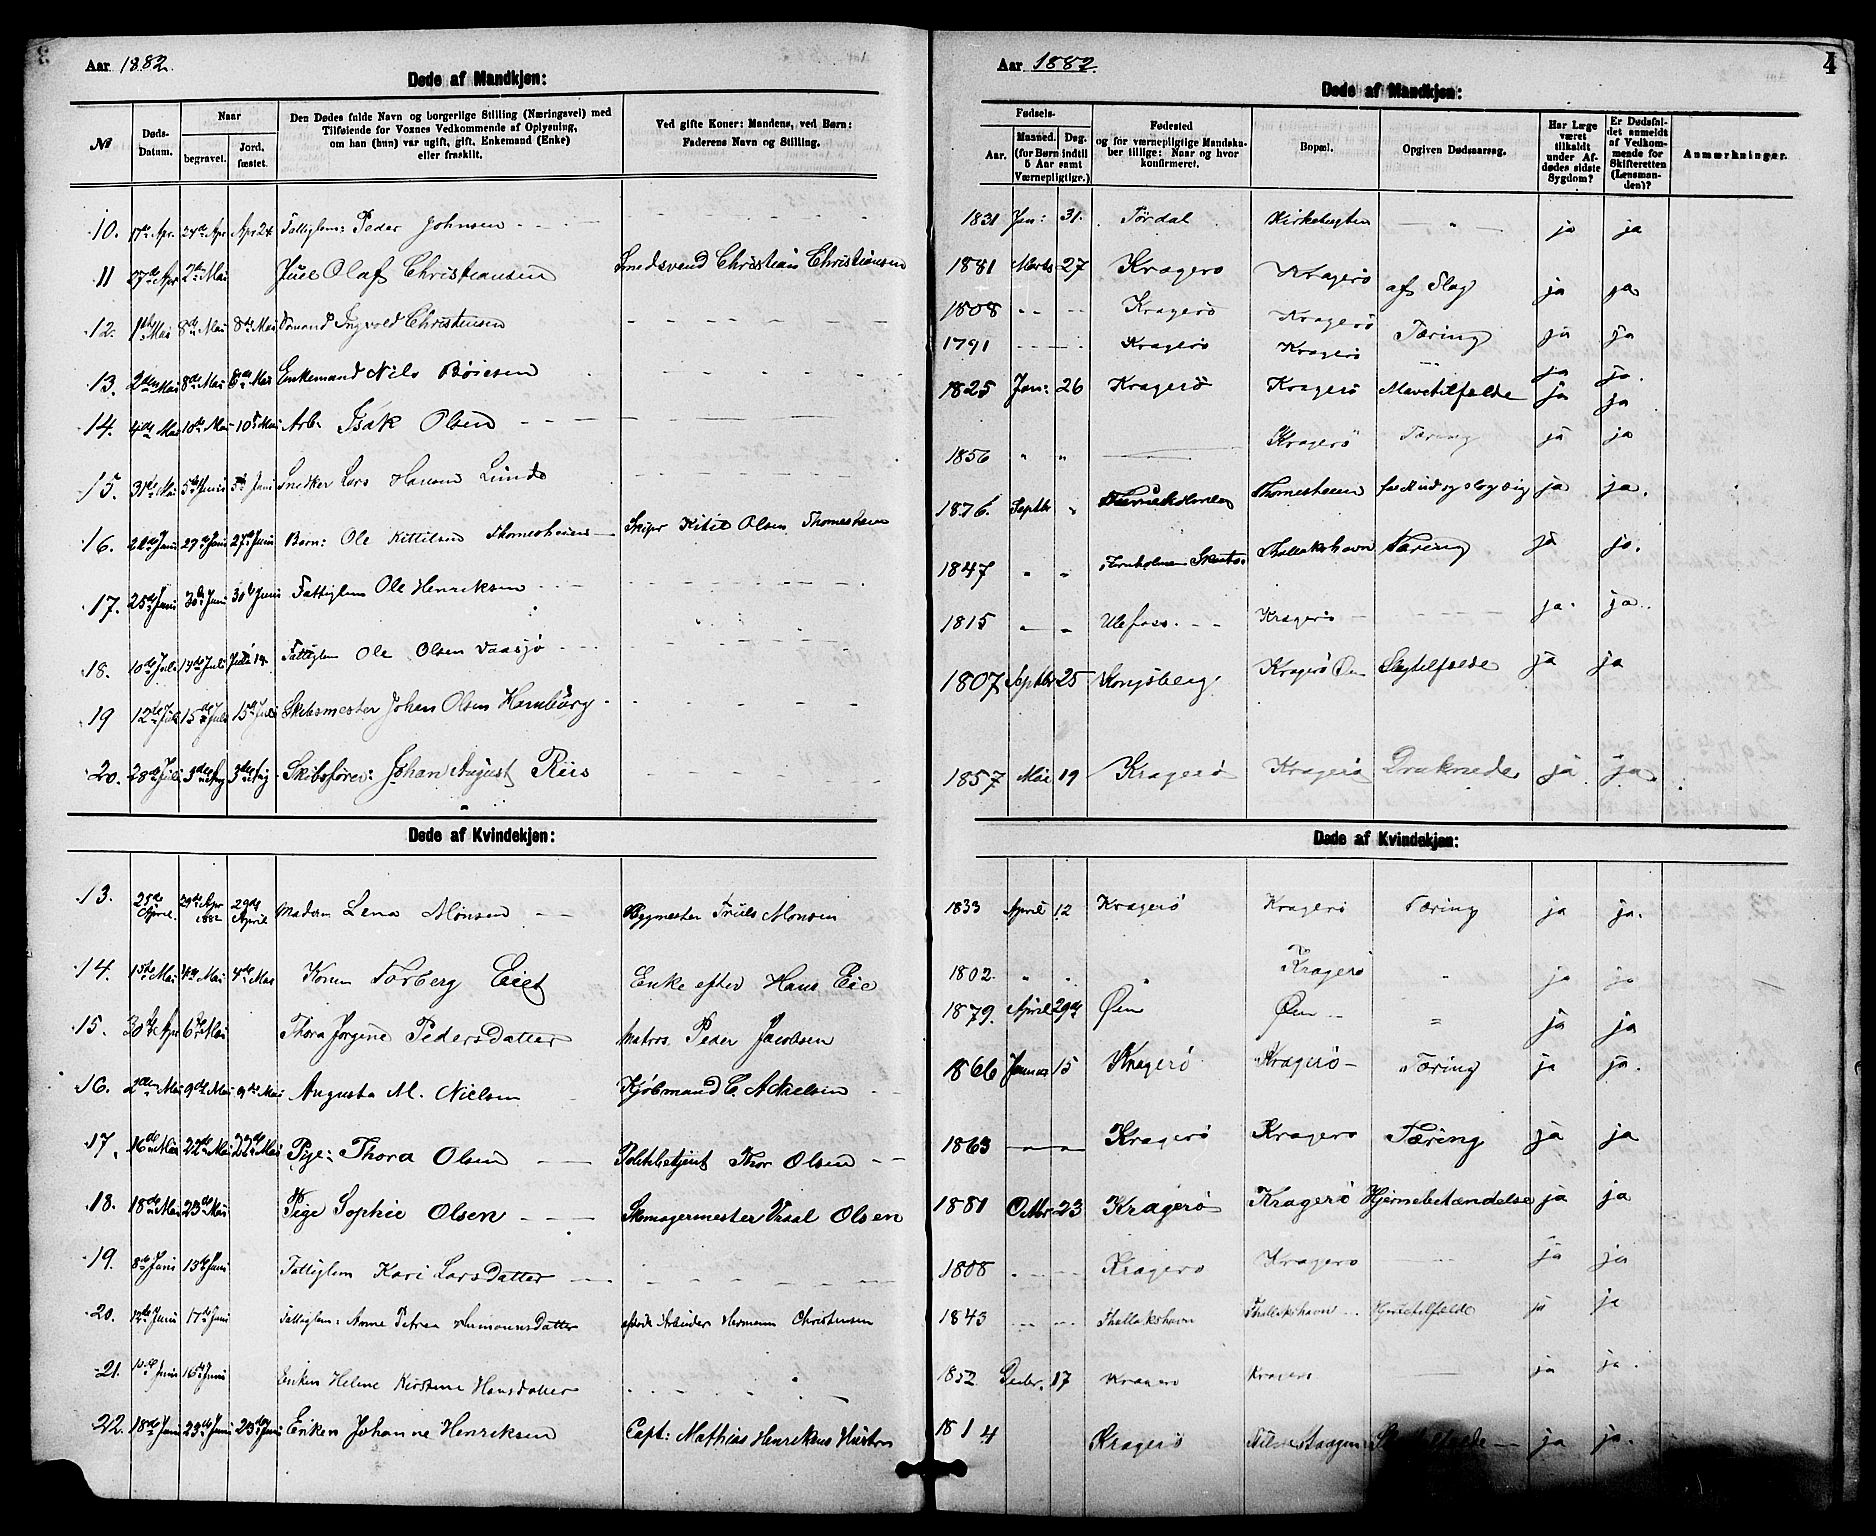 Aar 1882.
Døde af Mandkjøn:
№
Døds-Datum.
Naar
begravet.
Jord, fæstet.
Den Dødes fulde Navn og borgerlige Stilling (Næringsvei) med
Tilføiende for Voxnes Vedkommende af Oplysning,
om han (hun) var ugift, gift, Enkemand (Enke)
eller fraskilt.
Ved gifte Koner: Mandens, ved Børn:
Faderens Navn og Stilling.
10. 17de Apr. 24de Apr Apr 24 Fattiglem: Peder Johnsen
11 27de Apr 2den Mai Juel Olaf Christiansen Smedsvend Christian Christiansen
12. 1ste Mai 8de Mai 8de Mai Ingvold Christensen
13. 2den Mai 8de Mai 8de Mai Enkemand Nils Böiesen
14. 4de Mai 10de Mai 10de Mai Arb. Isak Olsen
15. 31te Mai 5te Juni 5te Juni Snedker Lars Hansen Lund
16. Juni 29de Juni 27de Juni Barn: Ole Kittilsen Thomesheien Skipr Kitil Olsen Thomesheien
17. 25de Juni 30de Juni 30te Juni Fattiglem Ole Henriksen
18. 10de Juli 14de Juli Juli 14 Fattiglem Ole Olsen Vaasjö
19 12te Juli 15de Juli 15de Juli Skibsmester Johan Olsen Hamburg
20. 28de Juli 3die Aug 3die Aug Skibsfører: Johan August Riis
Døde af Kvindekjøn:
13. 25de April. 29de Apr 1882 29de April Madam Lena Monsen Bygmester Truls Monsen
14. 1ste Mai 4de Mai 4de Mai Konen Torberg Eiet Enke efter Hans Eie
15. 30te Apr 6te Mai Thora Jorgine PedersDatter Matros Peder Jacobsen
16. 2den Mai 9de Mai 9de Mai Augusta M. Nielsen Kjöbmand C. A Nielsen
17. 16de Mai 22de Mai 22de Mai Pige: Thora Olsen Politibetjent Thor Olsen
18. 18de Mai 23de Mai Pige Sophie Olsen Skomagermester Vraal Olsen
19. 8de Juni 13de Juni Fattiglem Kari LarsDatter
20. 12te Juni 17de Juni Fattiglem: Anne Petrea Arbeider Hermann Christensen
21. Juni 16de Juni Enken Helene Kirstine Hansdatter
22. 18de Juni 23de Juni 23de Juni Enken Johanne Henriksen Capt: Mathias Henriksens
Aar 1882.
4
Døde af Mandkjøn:
Fødsels-
Aar.
Maaned. Dag.
(for Børn indtil
5 Aar samt
Værnepligtige.)
Fødested
og for værnepligtige Mandska-
ber tillige: Naar og hvor
konfirmeret.
Bopæl.
Opgiven Dødsaarsag.
Har Læge
været
tilkaldt
under Af-
dødes sidste
Sygdom?
Er Dødsfal-
det anmeldt
af Vedkom-
mende for
Skifteretten
(Lensman-
den)?
Anmærkninger.
1831 Jan: 31. Tördal Kirkebugten " ja ja
1881 Marts 27 Kragerø Kragerö af Slag ja ja
1808 Kragerö Kragerö Tæring ja ja
1791 Kragerö Kragerö ja ja.
1825 Jan: 26 Kragerö Kragerö Mavetilfælde ja ja
1856 " " Kragerö Tæring ja ja
1876. Septbr " Thomesheien faldt ud og slog sig ja ja.
1847 " " Thallakshavn Tæring ja ja.
1815 Ulefoss. Kragerö ja. ja.
1807 Septbr 25 Kongsberg Kragerö Øen Slagtilfælde ja ja
1857 Mai 19 Kragerö Kragerö Druknede ja ja.
Døde af Kvindekjøn:
1833 April 12 Kragerö Kragerö Tæring ja ja.
1802. " " " Kragerö " ja ja
1879. April 29de Øen Øen " ja ja
1866 Januar 15 Kragerö Kragerö Tæring ja ja.
1863 Kragerö Kragerö Tæring ja ja
1881 Octbr 23 Kragerö Kragerö Hjernebetændelse ja ja
1808 Kragerö Kragerö ja ja
1843 Thallakshavn Thallakshavn Hjertetilfælde ja ja
1852. Decbr. 17 Kragerö Kragerö ja ja.
1814 Kragerö ja ja.